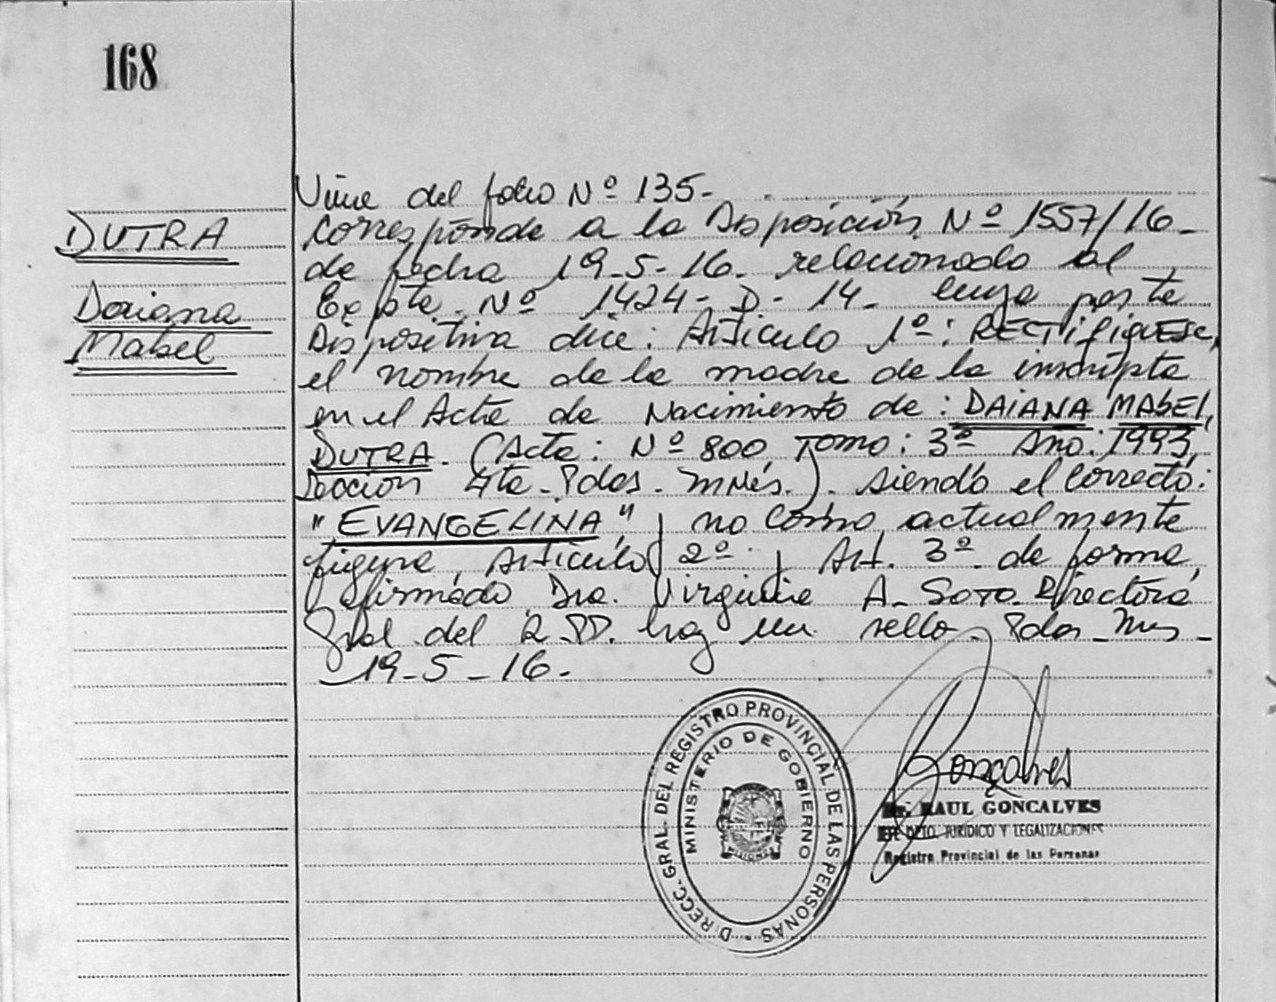 168
DUTRA
Daiana
Mabel
Viene del folio Nº 135-
Corresponde a la Disposición Nº 1557/16-
de fecha 19-5-16. relacionado al
Expte. Nº 1424-D-14- cuya parte
Dispositiva dice: Artículo 1º: RECTIFIQUESE,
el nombre de la madre de la inscripta
en el Acta de Nacimiento de: DAIANA MABEL
DUTRA. (Acta: Nº 800 Tomo: 3º Año: 1993
Sección 4ta-Pdas-Mnes.). siendo el correcto:
"EVANGELINA" y no como actualmente
figura, Artículo 2º y Art. 3º de forma,
firmado Dra. Virginia A-Soto-Directora
Gral del R.PP. hay un sello-Pdas-Mns-
19-5-16-
DIRECC. GRAL. DEL REGISTRO PROVINCIAL DE LAS PERSONAS
MINISTERIO DE GOBIERNO
MISIONES
Gonçalves
RAUL GONCALVES
DPTO. JURIDICO Y LEGALIZACIONES
Registro Provincial de las Personas